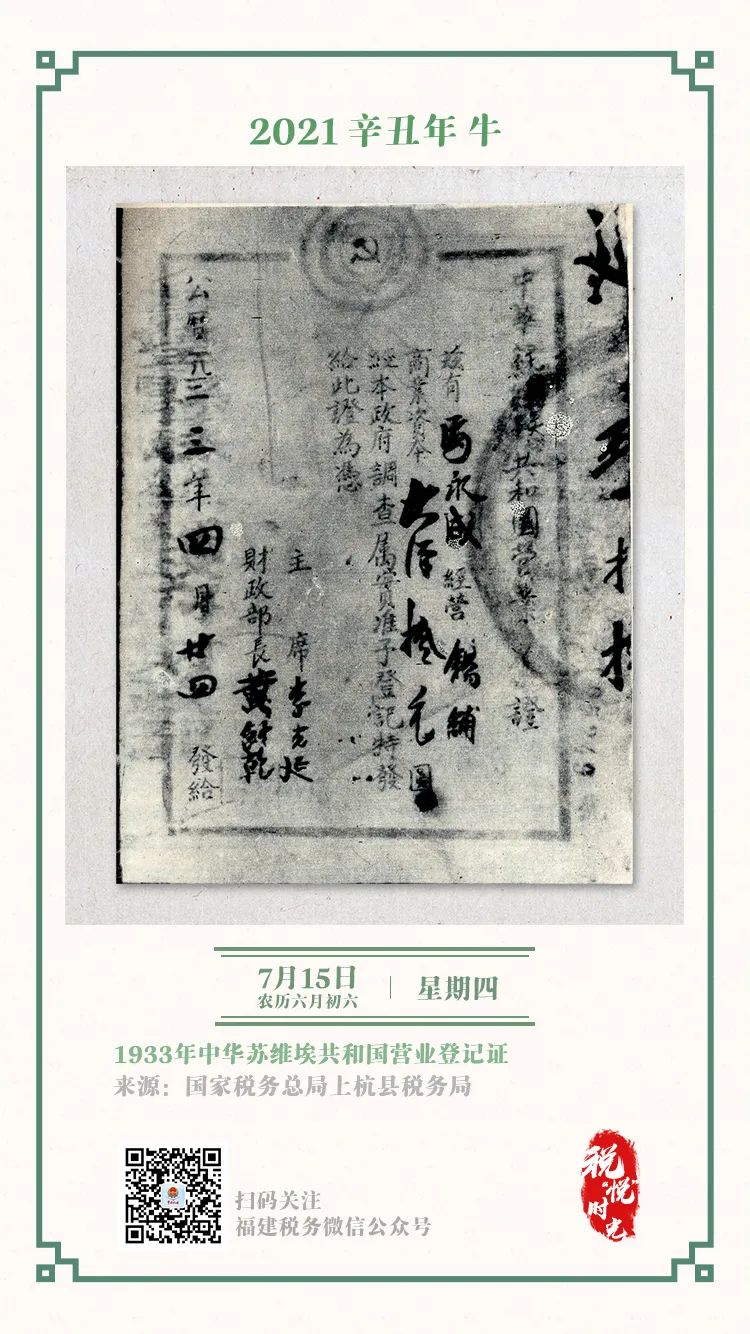 2021 辛丑年 牛
中華蘇維埃共和國營業登記證
茲有 永成 經營 鋪
商業資本 大洋 元 圓
經本政府調查属實准予登記特發
給此證為憑
主 席 李
財政部長 黄
公曆一九三三年四月廿四 發給
7月15日
农历六月初六
星期四
1933年中华苏维埃共和国营业登记证
来源：国家税务总局上杭县税务局
扫码关注
福建税务微信公众号
税
“悦”
时
光